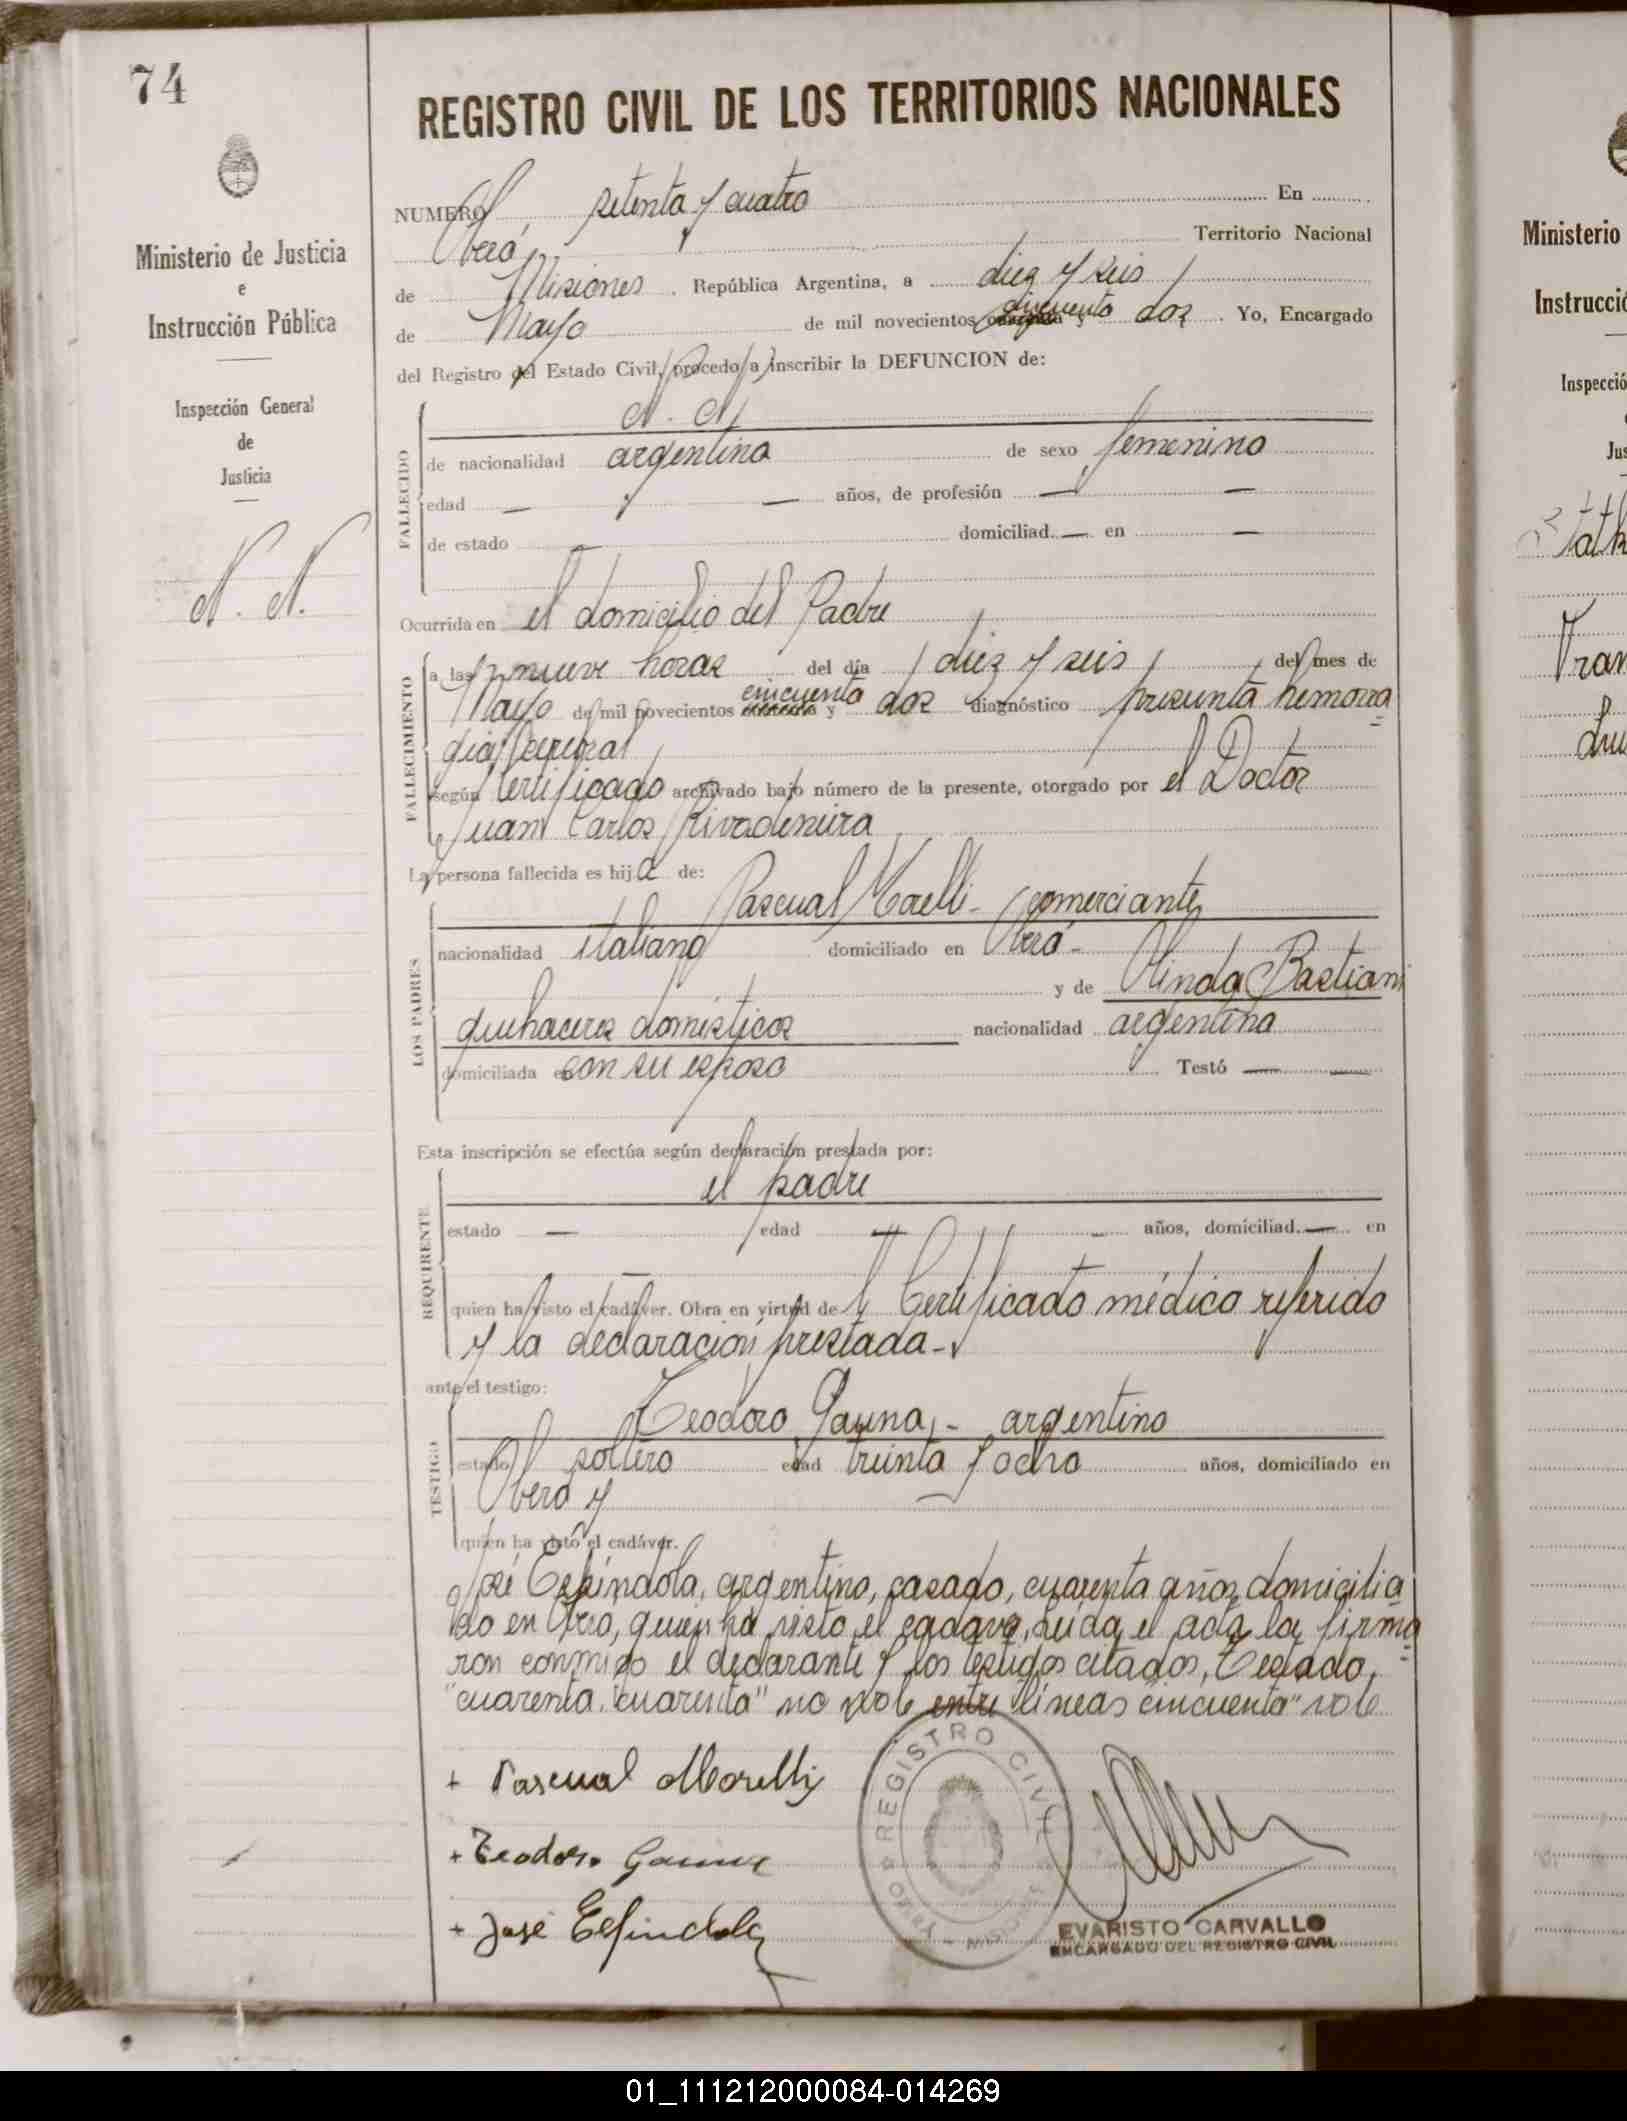 74
REGISTRO CIVIL DE LOS TERRITORIOS NACIONALES
Ministerio de Justicia
e
Instrucción Pública
Inspección General
de
Justicia
N. N.
NUMERO setenta y cuatro En
Oberá, Territorio Nacional
de Misiones, República Argentina, a diez y seis
de Mayo de mil novecientos cincuenta y dos. Yo, Encargado
del Registro del Estado Civil, procedo a inscribir la DEFUNCION de:
FALLECIDO
N. N.
de nacionalidad argentina de sexo femenino
edad — — años, de profesión — —
de estado — domiciliad — en —
Ocurrida en el domicilio del Padre
FALLECIMIENTO
a las nueve horas del día diez y seis del mes de
Mayo de mil novecientos cincuenta y dos diagnóstico presunta hemorra=
gia cerebral
según Certificado archivado bajo número de la presente, otorgado por el Doctor
Juan Carlos Rivadeneira
La persona fallecida es hija de:
LOS PADRES
Pascual Morelli - comerciante
nacionalidad italiano domiciliado en Oberá -
y de Olinda Bastiani
quehaceres domésticos nacionalidad argentina
domiciliada en con su esposo Testó — —
Esta inscripción se efectúa según declaración prestada por:
REQUIRENTE
el padre
estado — edad — — años, domiciliad — en
—
quien ha visto el cadáver. Obra en virtud del Certificado médico referido
y la declaración prestada -
ante el testigo:
TESTIGO
Teodoro Gauna, - argentino
estado soltero edad treinta y ocho años, domiciliado en
Oberá y
quien ha visto el cadáver.
José Espíndola, argentino, casado, cuarenta años, domicilia
do en Oberá, quien ha visto el cadaver, Leida el acta la firma=
ron conmigo el declarante y los testigos citados, Testado,
"cuarenta. cuarenta" no vale entre líneas "cincuenta" vale
+ Pascual Morelli
+ Teodoro Gauna
+ José Espindola
REGISTRO CIVIL
MISIONES
EVARISTO CARVALLO
ENCARGADO DEL REGISTRO CIVIL
Ministerio
01_111212000084-014269